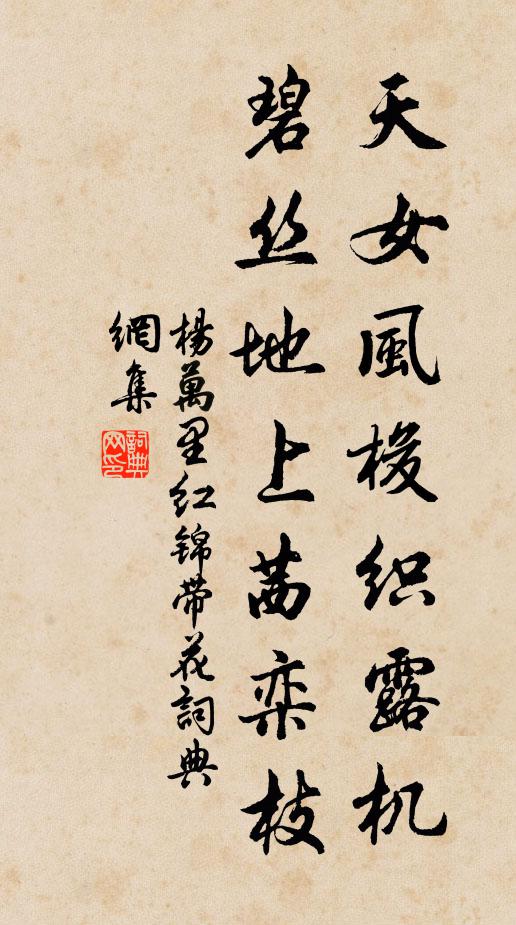 天女風梭织露机
碧丝地上茜栾枝
楊萬里红锦带花詞典
網集
詞典
网印